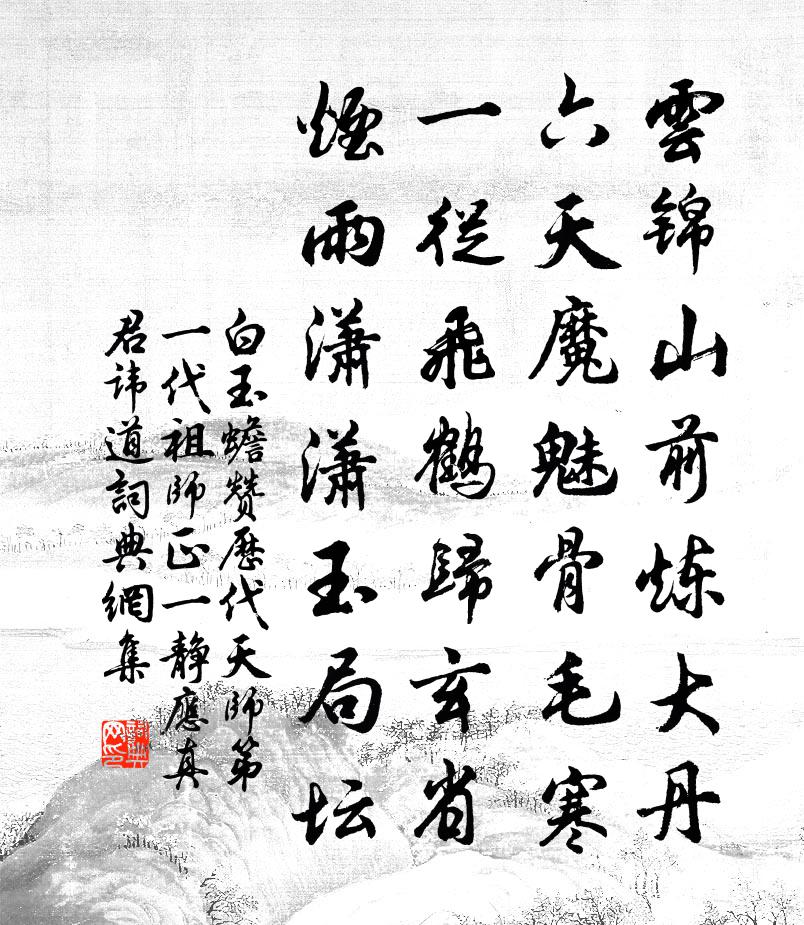 雲錦山前炼大丹
六天魔魅骨毛寒
一從飛鶴歸玄省
煙雨瀟瀟玉局坛
白玉蟾赞歷代天師第
一代祖師正一靜應真
君讳道詞典網集